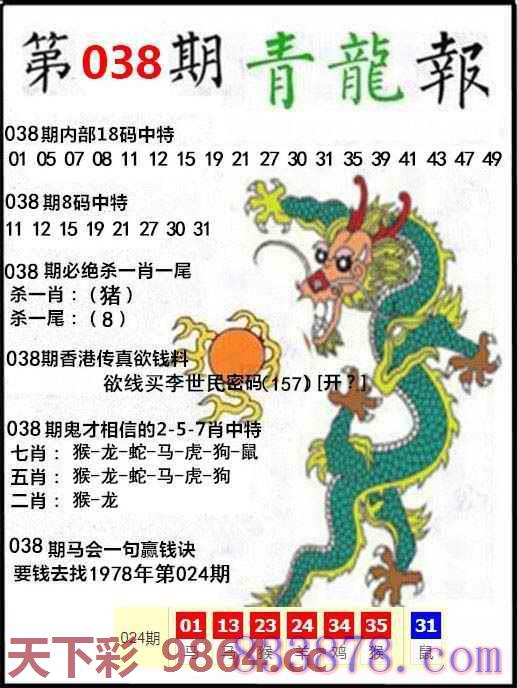 第038期青龍報
038期内部18码中特
01 05 07 08 11 12 15 19 21 27 30 31 35 39 41 43 47 49
038期8码中特
11 12 15 19 21 27 30 31
038期必绝杀一肖一尾
杀一肖：（猪）
杀一尾：（8）
038期香港传真欲钱料
欲线买李世民密码(157) [开？]
038期鬼才相信的2-5-7肖中特
七肖：猴-龙-蛇-马-虎-狗-鼠
五肖：猴-龙-蛇-马-虎-狗
二肖：猴-龙
038期马会一句赢钱诀
要钱去找1978年第024期
024期 01 13 23 24 34 35 31
马 猴 羊 鸡 猴 鼠
天下彩 9864.cc
.com